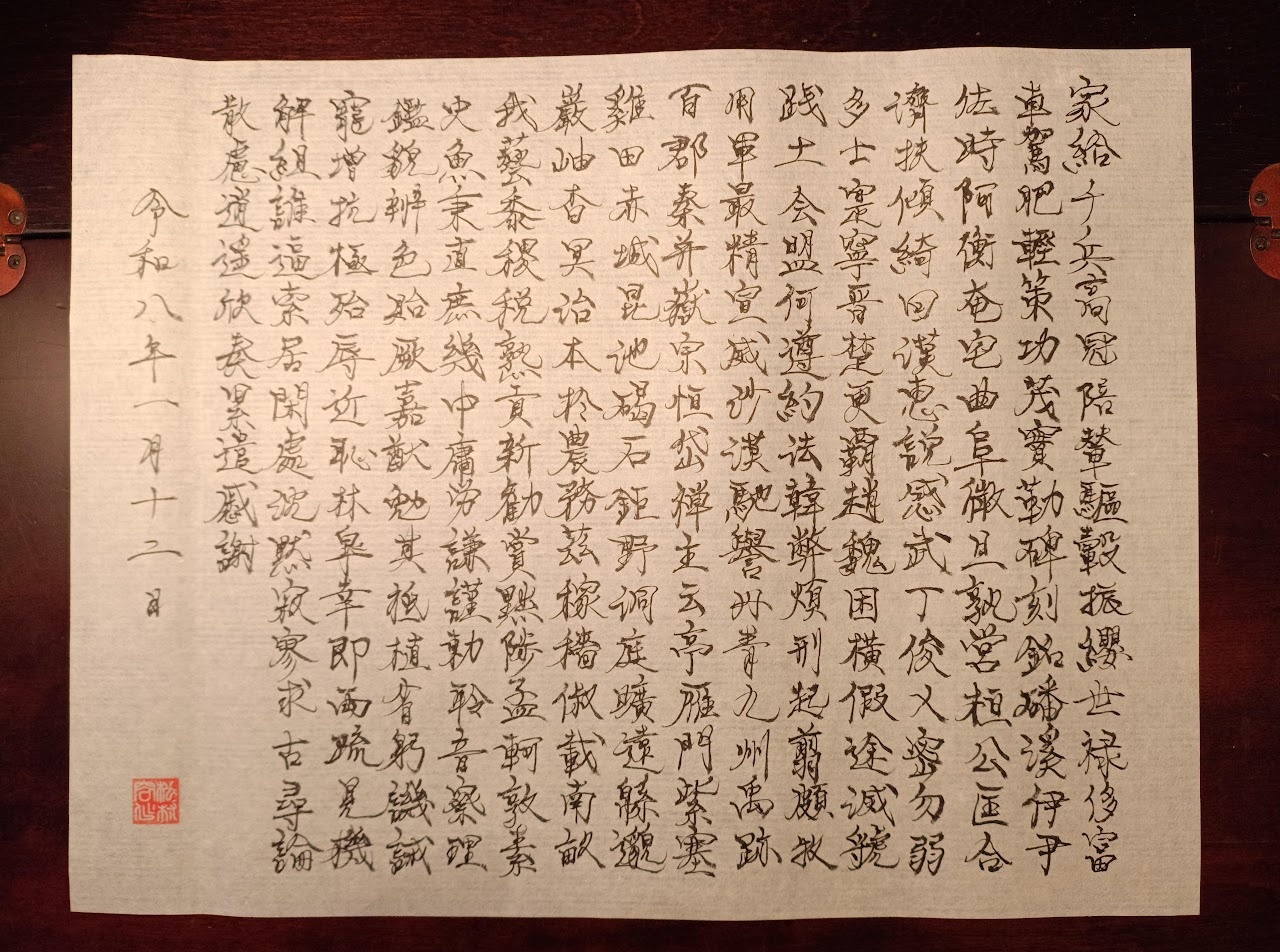 家給千兵高冠陪輦驅轂振纓世禄侈富
車駕肥軽策功茂實勒碑刻銘磻溪伊尹
佐時阿衡奄宅曲阜微旦孰営桓公匡合
濟扶傾綺回漢恵説感武丁俊乂密勿弱
多士寔寧晋楚更覇趙魏困横假途滅虢
践土会盟何遵約法韓弊煩刑起翦頗牧
用軍最精宣威沙漠馳譽丹青九州禹跡
百郡秦并嶽宗恒岱禅主云亭雁門紫塞
雞田赤城昆池碣石鉅野洞庭曠遠緜邈
巌岫杳冥治本於農務茲稼穡俶載南畝
我藝黍稷税熟貢新勧賞黜陟孟軻敦素
史魚秉直庶幾中庸労謙謹勅聆音察理
鑑貌辨色貽厥嘉猷勉其祗植省躬譏誡
寵増抗極殆辱近恥林皐幸即両疏見機
解組誰逼索居閑處沈黙寂寥求古尋論
散慮逍遥欣奏累遣慼謝
令和八年一月十二日